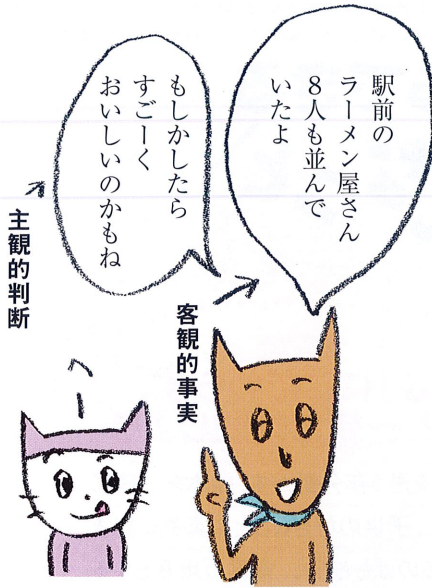 駅前の
ラーメン屋さん
8人も並んで
いたよ
客観的事実
もしかしたら
すごーく
おいしいのかもね
主観的判断
へー